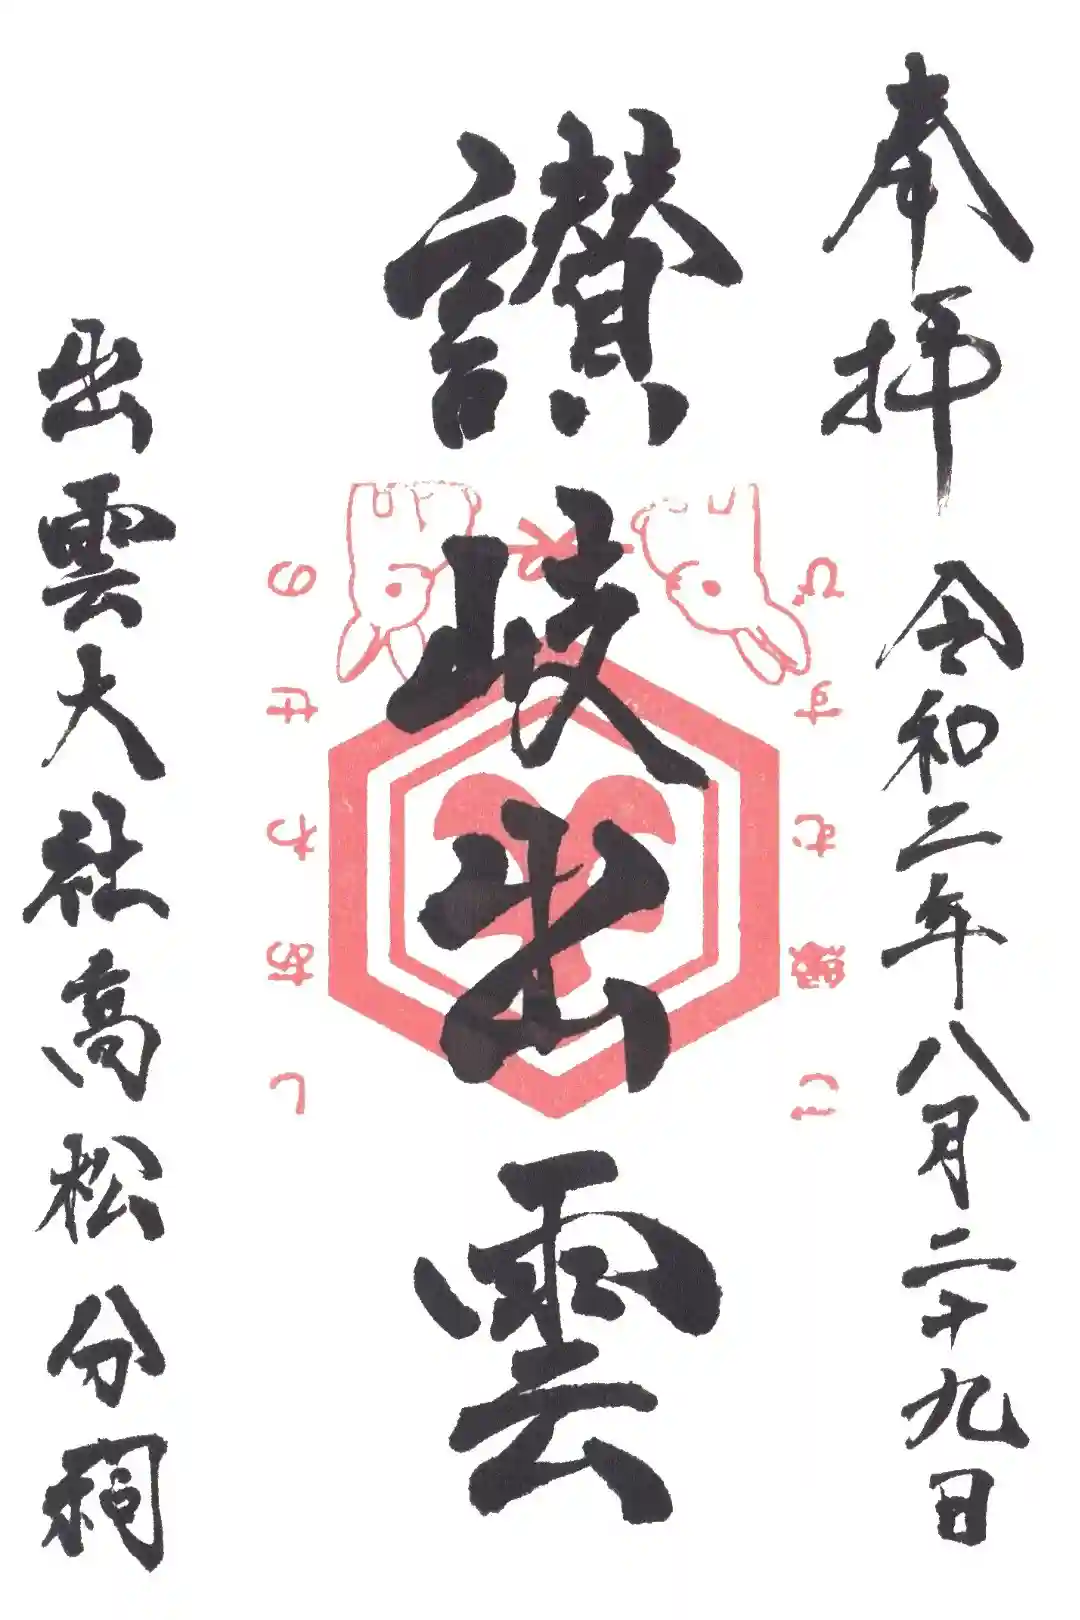 奉拝 令和二年八月二十九日
讃岐出雲
しあわせの
ご縁むすび
出雲大社高松分祠